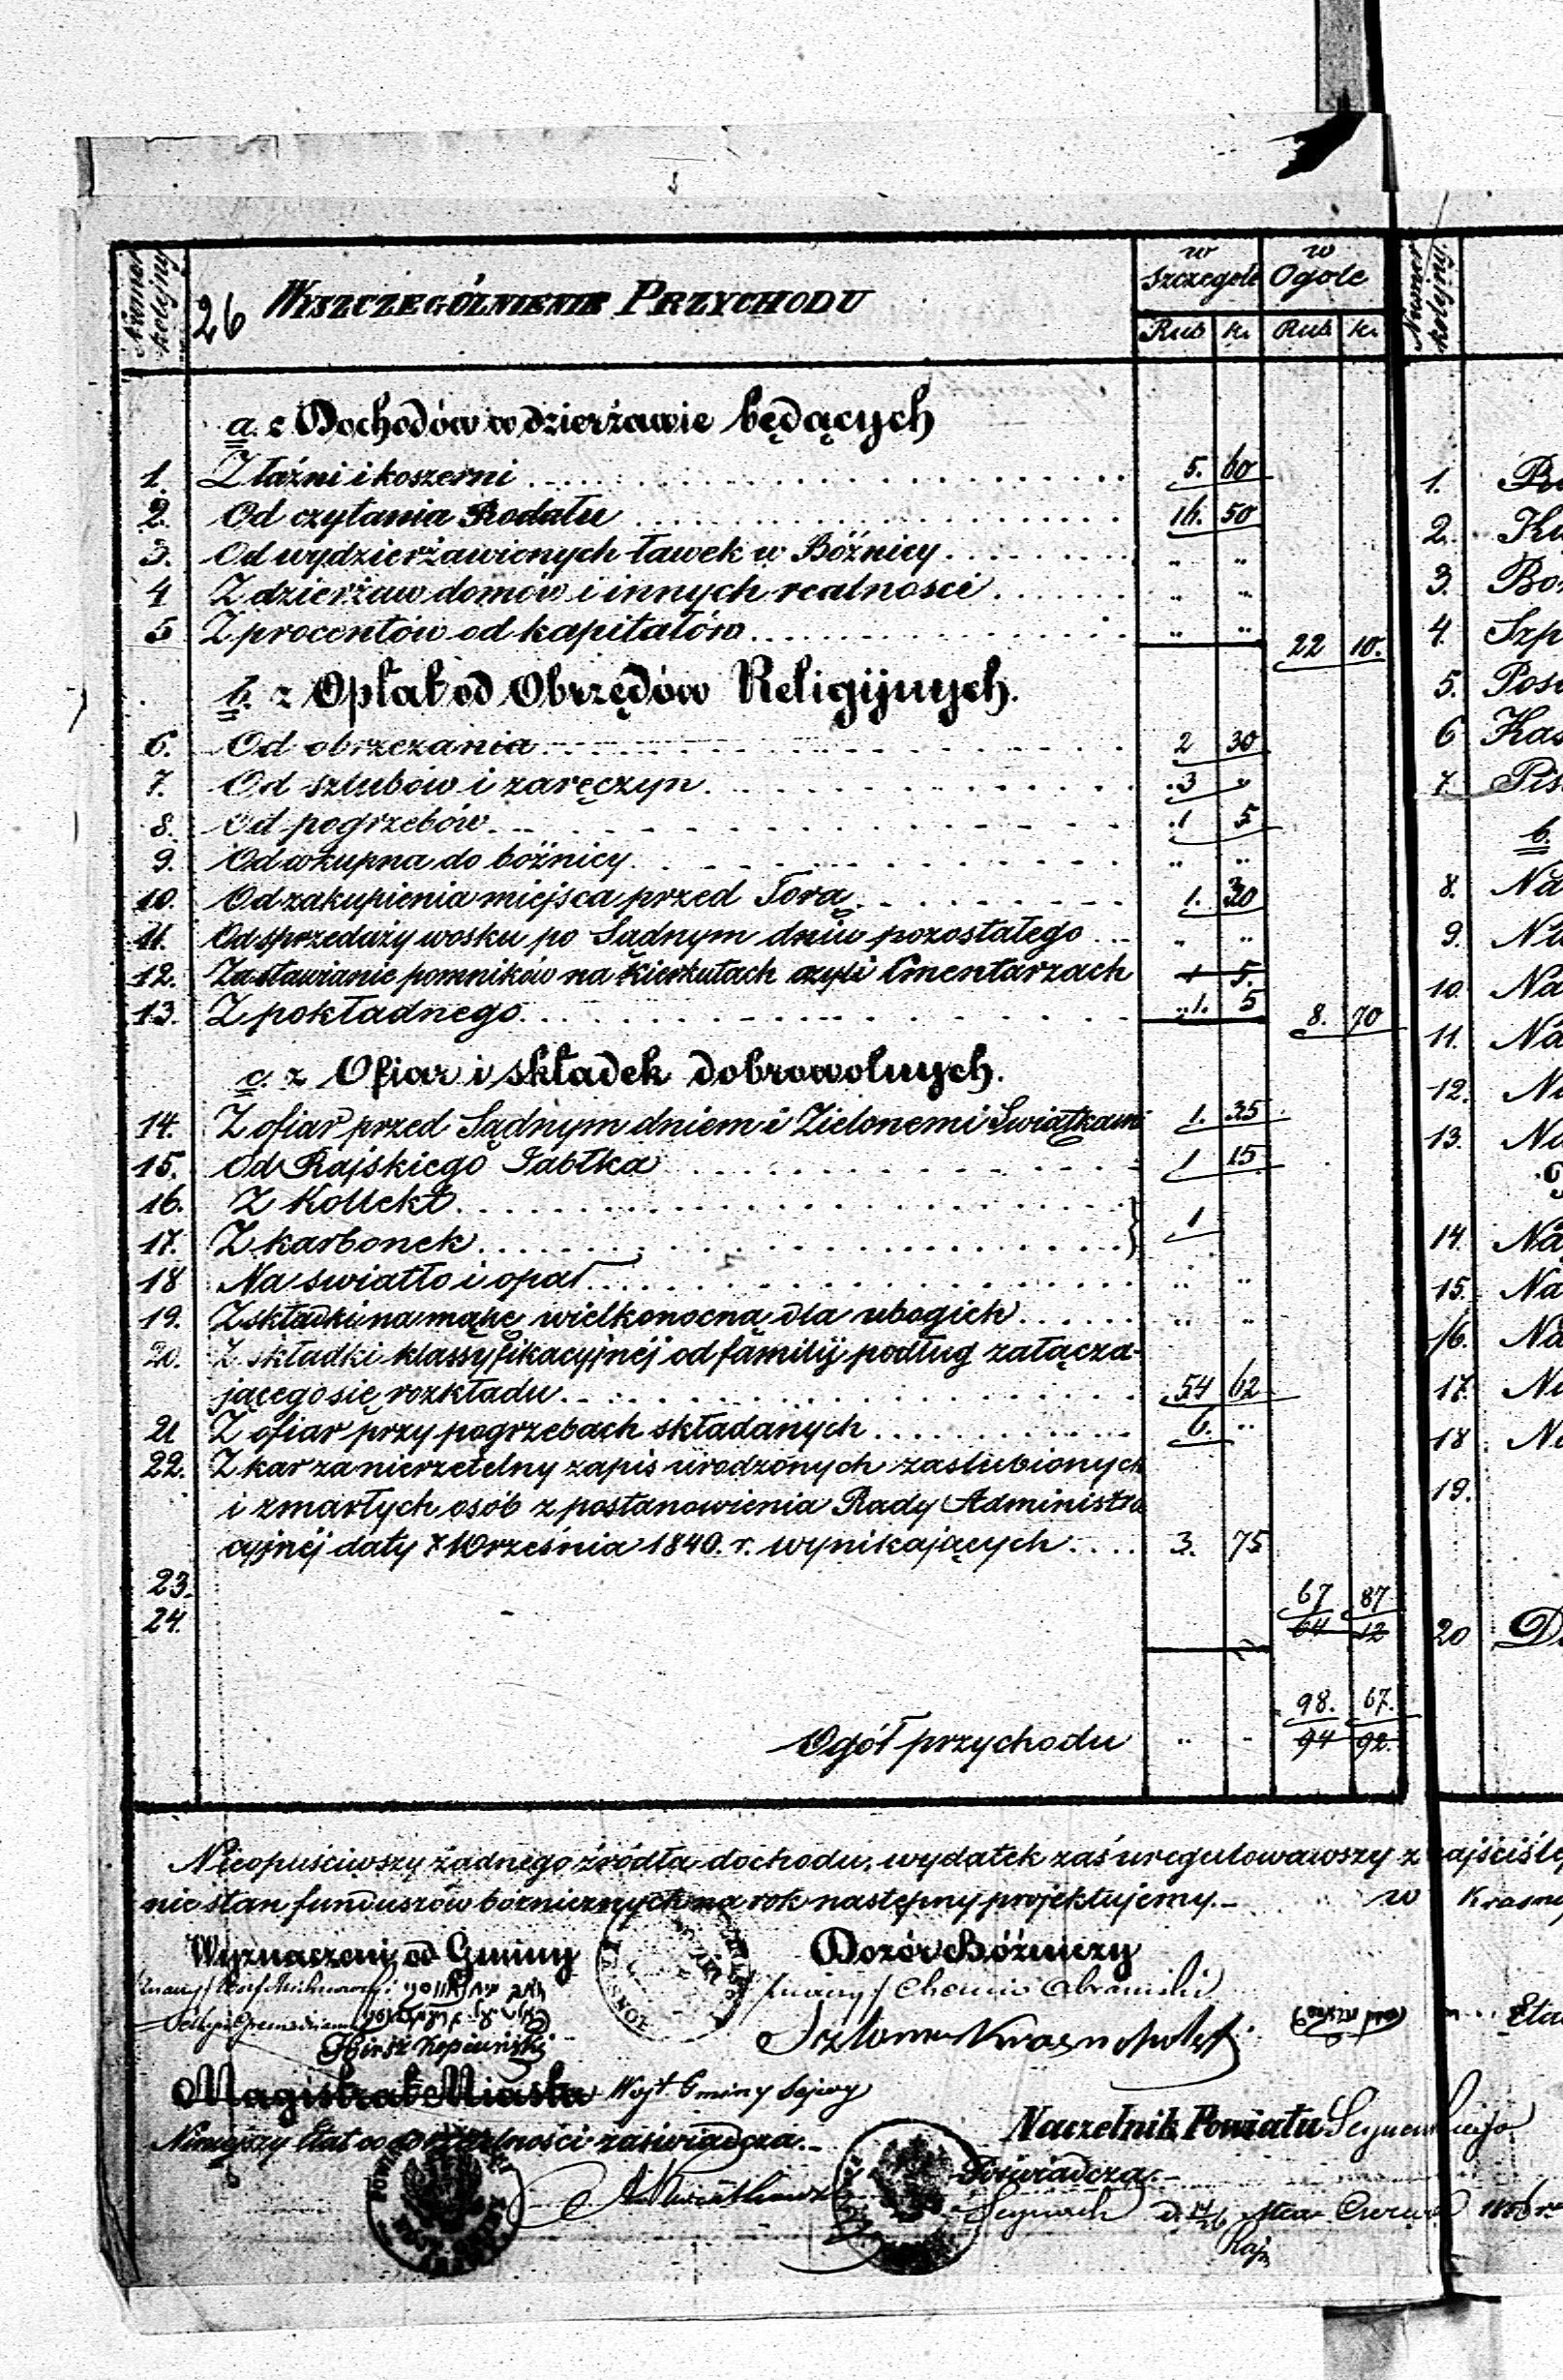 Numer kolejny
26 WYSZCZEGÓLNIENIE PRZYCHODU
w Szczegole
w Ogole
Rub k. Rub k.
Numer kolejny.
a. z Dochodów w dzierżawie będących
1. Z łaźni i koszerni 5. 60
2. Od czytania Rodału 16. 50
3. Od wydzierżawionych ławek w Bóźnicy " "
4 Z dzierżaw domów i innych realnosci " "
5 Z procentów od kapitałów " " 22 10.
b. z Opłat od Obrzędów Religijnych.
6. Od obrzezania 2 30
7. Od szlubów i zaręczyn 3 "
8. Od pogrzebów 1 5
9. Od wkupna do bóżnicy " "
10. Od zakupienia miejsca przed Torą 1. 30
11. Od sprzedaży wosku po Sądnym dniu pozostałego " "
12. Za stawianie pomników na Kierkutach czyli Cmentarzach 1 5.
13. Z pokładnego 1. 5 8. 70
c. z Ofiar i składek dobrowolnych.
14. Z ofiar przed Sądnym dniem i Zielonemi Swiątkami 1. 35
15. Od Rajskiego Jabłka 1 15
16. Z Kollekt
17. Z karbonek } 1
18 Na swiatło i opał " "
19. Z składki na mąkę wielkonocną dla ubogich " "
20. Z składki klassyfikacyjnéj od familij podług załącza-
jącego się rozkładu 54 62
21 Z ofiar przy pogrzebach składanych 6. "
22. Z kar za nierzetelny zapis urodzonych zaslubionych
i zmarłych osób z postanowienia Rady Administra
cyjnéj daty 7 Września 1840. r. wynikających 3. 75
23.
24.
67 87
64 12
98. 67.
Ogół przychodu " " 94 92.
1.
2. Ku
3. Bo
4. Szp
5. Pos
6 Kas
7. Pis
b.
8. Na
9. Na
10. Na
11. Na
12. Na
13. Na
14. Na
15. Na
16. Na
17. Na
18 Na
19.
20
Nieopuściwszy żadnego źródła dochodu, wydatek zaś uregulowawszy z najściśle
nie stan funduszów bóżnicznych na rok następny projektujemy. w Krasno
Wyznaczeni od Gminy
Dozór Bóżniczy
Szloma Krasnopolski
Magistrat Miasta Wojt Gminy Sejwy
Niniejszy Etat co do rzetelności zaświadcza.
Naczelnik Powiatu
Poświadcza.